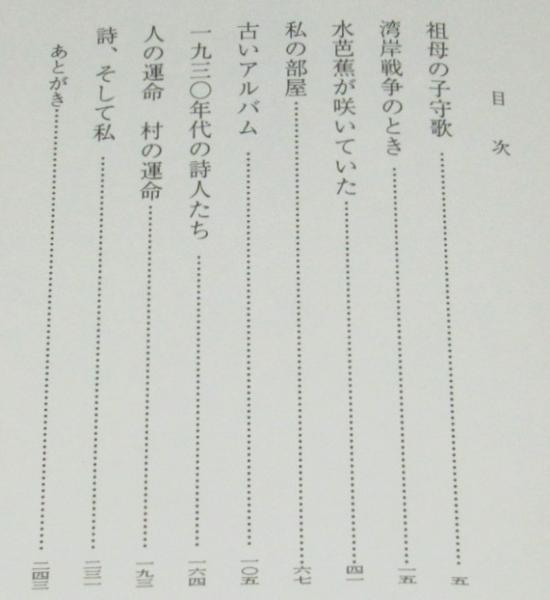 目次
祖母の子守歌……五
湾岸戦争のとき……一五
水芭蕉が咲いていた……四一
私の部屋……六七
古いアルバム……一〇五
一九三〇年代の詩人たち……一六四
人の運命　村の運命……一九三
詩、そして私……二三一
あとがき……二四三